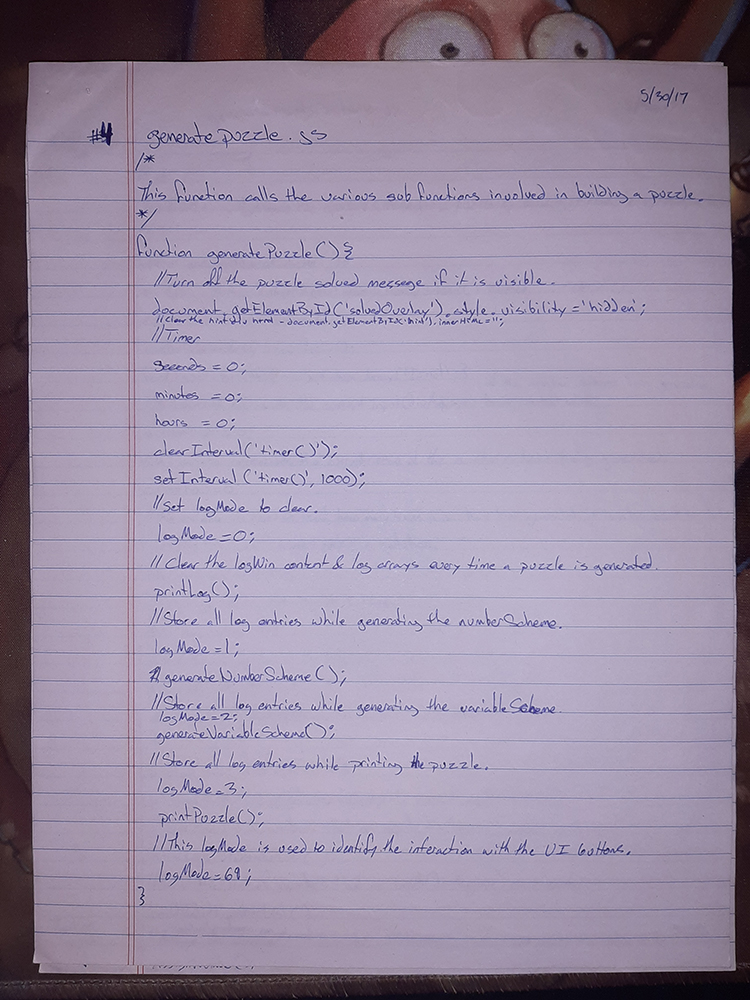 5/30/17
#4 generatePuzzle.js
/*
This function calls the various sub functions involved in building a puzzle.
*/
function generatePuzzle(){
//Turn off the puzzle solved message if it is visible.
document.getElementById('solvedOverlay').style.visibility='hidden';
//Clear the hint div html - document.getElementById('hint').innerHTML='';
//Timer
seconds = 0;
minutes = 0;
hours = 0;
clearInterval('timer()');
setInterval('timer()', 1000);
//Set logMode to clear.
logMode = 0;
//Clear the logWin content & log arrays every time a puzzle is generated.
printLog();
//Store all log entries while generating the numberScheme.
logMode = 1;
generateNumberScheme();
//Store all log entries while generating the variableScheme.
logMode = 2;
generateVariableScheme();
//Store all log entries while printing the puzzle.
logMode = 3;
printPuzzle();
//This logMode is used to identify the interaction with the UI buttons.
logMode = 69;
}